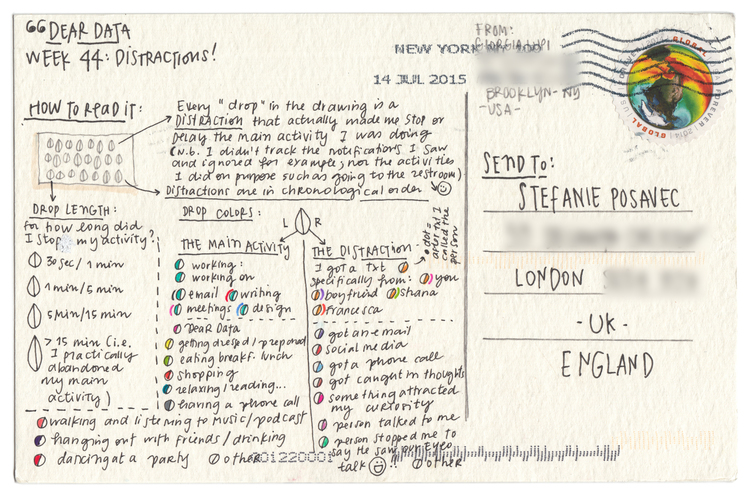 DEAR DATA
WEEK 44: DISTRACTIONS!
HOW TO READ IT:
Every "drop" in the drawing is a
DISTRACTION that actually made me stop or
delay the main activity I was doing
(N.b. I didn't track the notifications I saw
and ignored for example, nor the activities
I did on purpose such as going to the restroom)
Distractions are in chronological order
DROP LENGTH:
for how long did
I stop my activity?
30 sec/1 min
1 min/5 min
5 min/15 min
> 15 min (i.e.
I practically
abandoned
my main
activity)
DROP COLORS:
L R
THE MAIN ACTIVITY
working:
working on
email writing
meetings design
DEAR DATA
getting dressed/prepared
eating breakf. lunch
shopping
relaxing/reading...
having a phone call
walking and listening to music/podcast
hanging out with friends/drinking
dancing at a party other
THE DISTRACTION
I got a txt
specifically from: you
boyfriend shana
francesca
dot =
after txt I
called the
person
got an email
social media
got a phone call
got caught in thoughts
something attracted
my curiosity
person talked to me
person stopped me to
say He saw our Eyeo
talk !! other
FROM:
BROOKLYN - NY
- USA -
NEW YORK NY 100
14 JUL 2015
GLOBAL
FOREVER
2014
SEND TO:
STEFANIE POSAVEC
LONDON
- UK -
ENGLAND
01220001